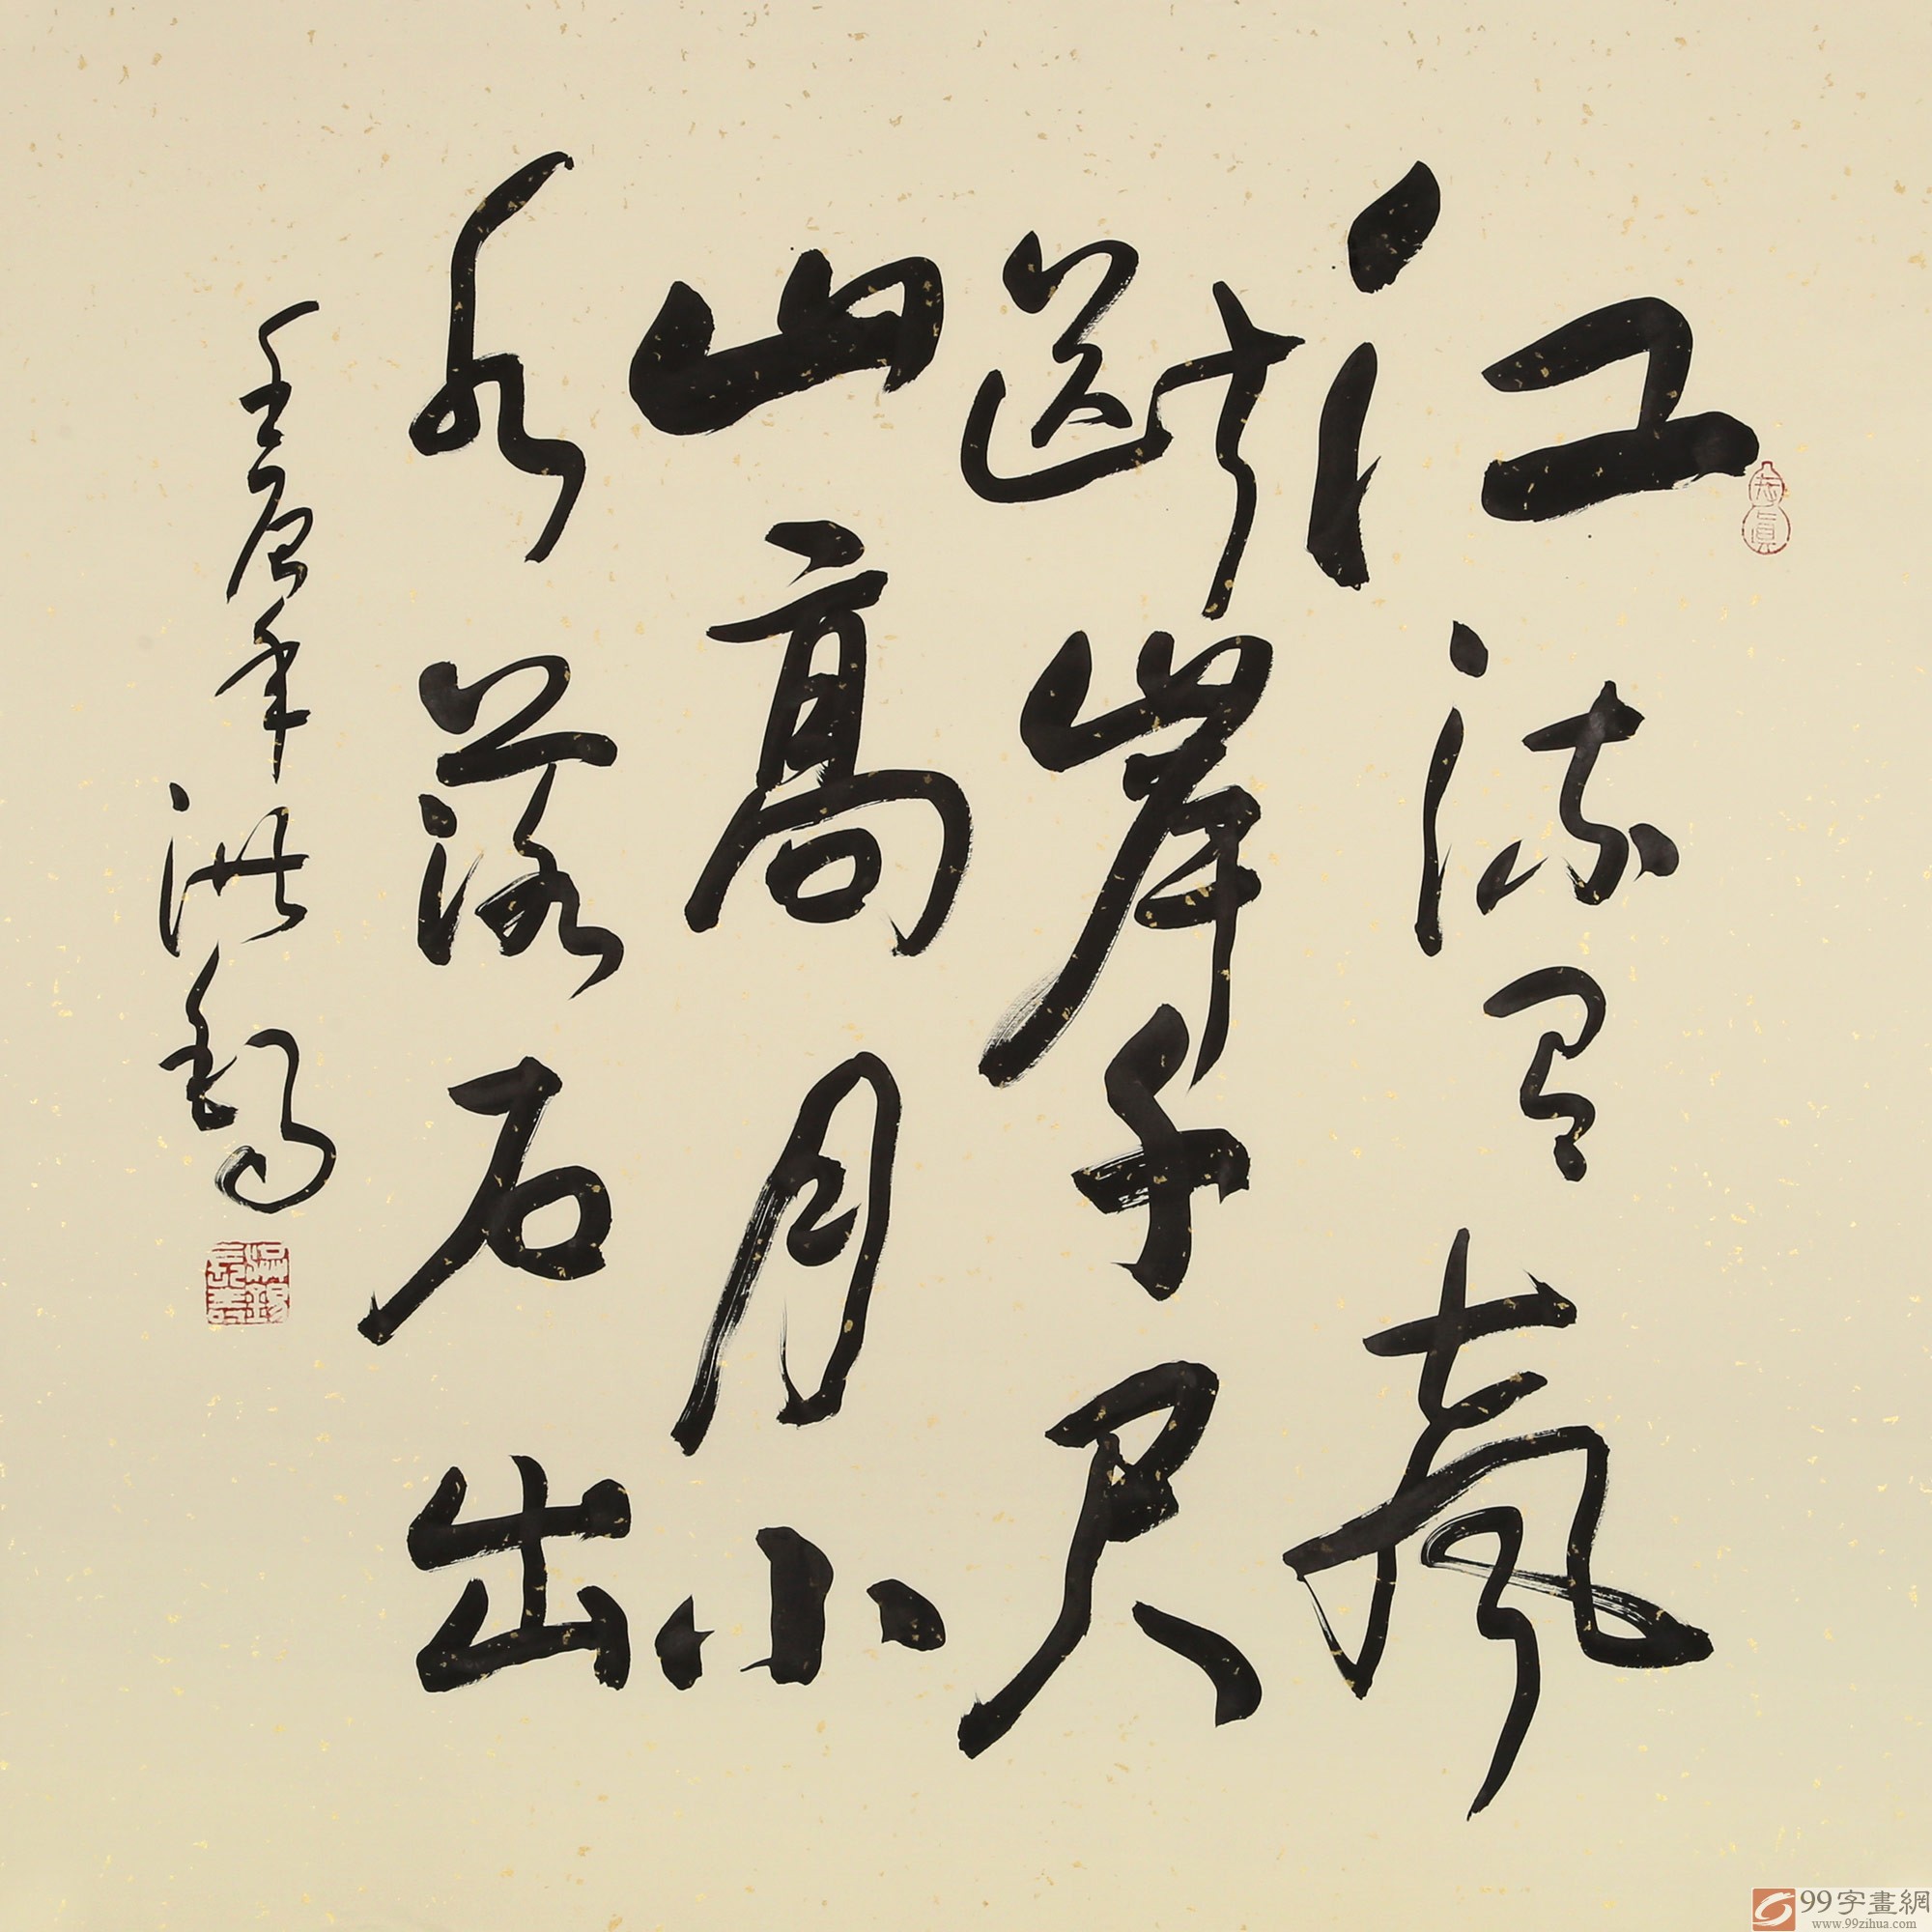 江流有聲
斷岸千尺
山高月小
水落石出
壬辰年洪錫
99字畫網
www.99zihua.com